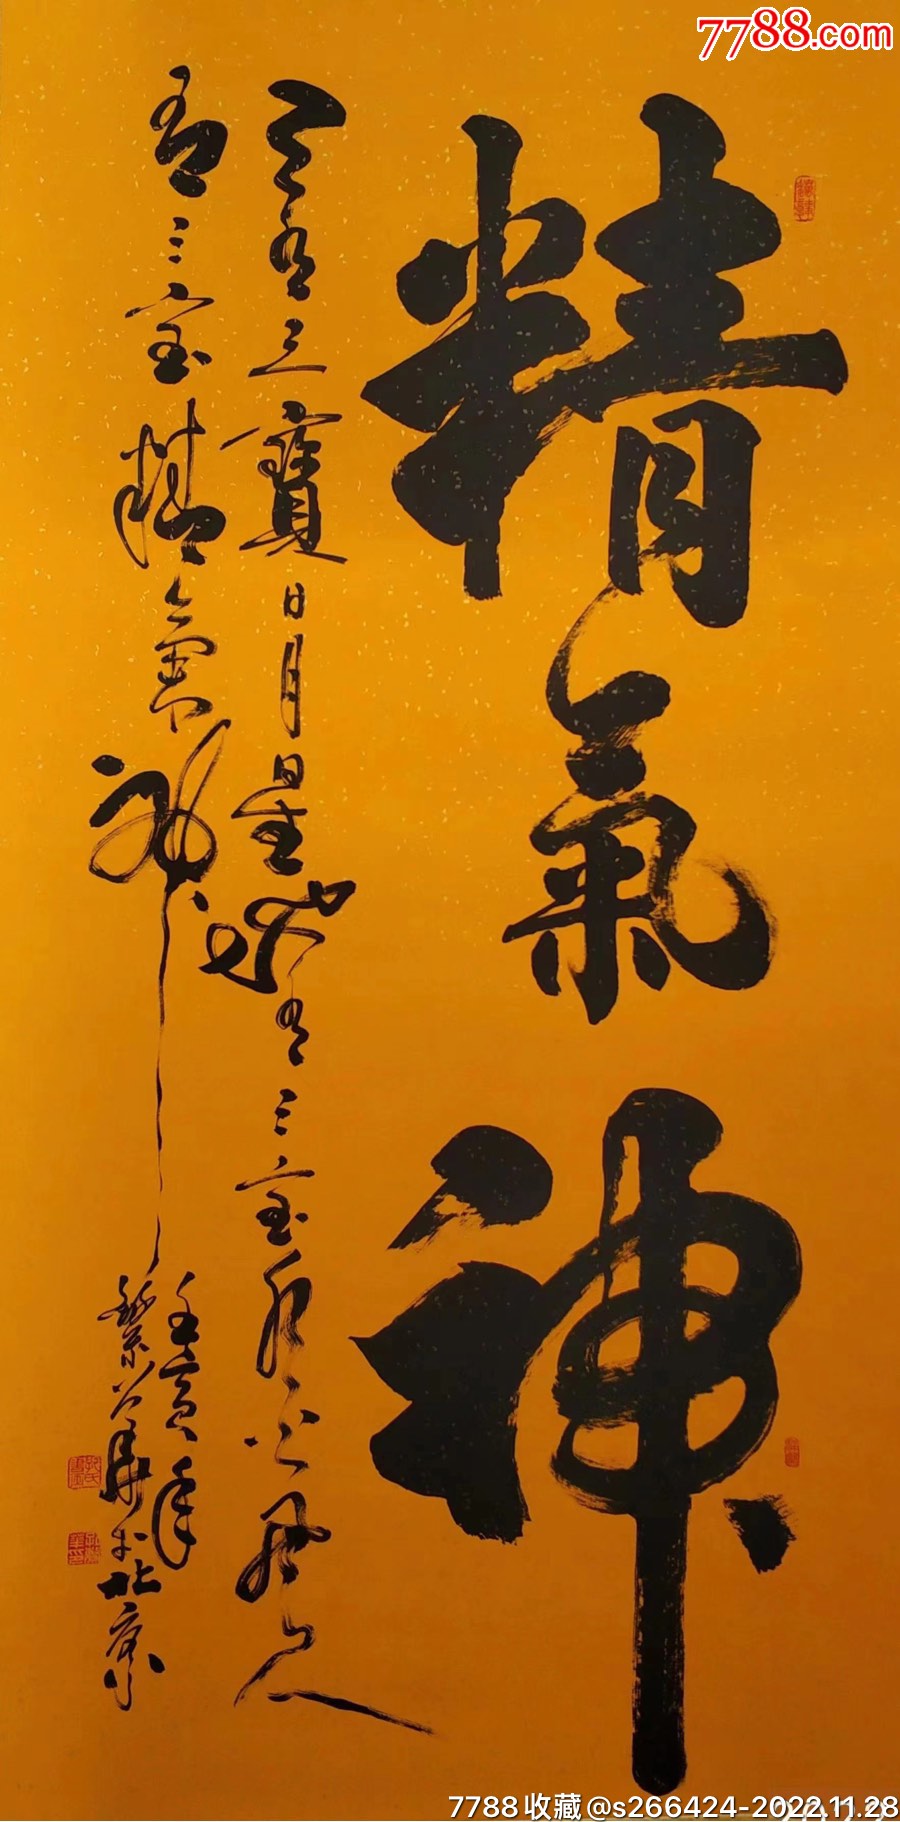 7788.com
精氣神
天有三寶日月星地有三宝水火风人
有三宝精氣神
壬寅年
繁华于北京
7788收藏@s266424-2022.11.28